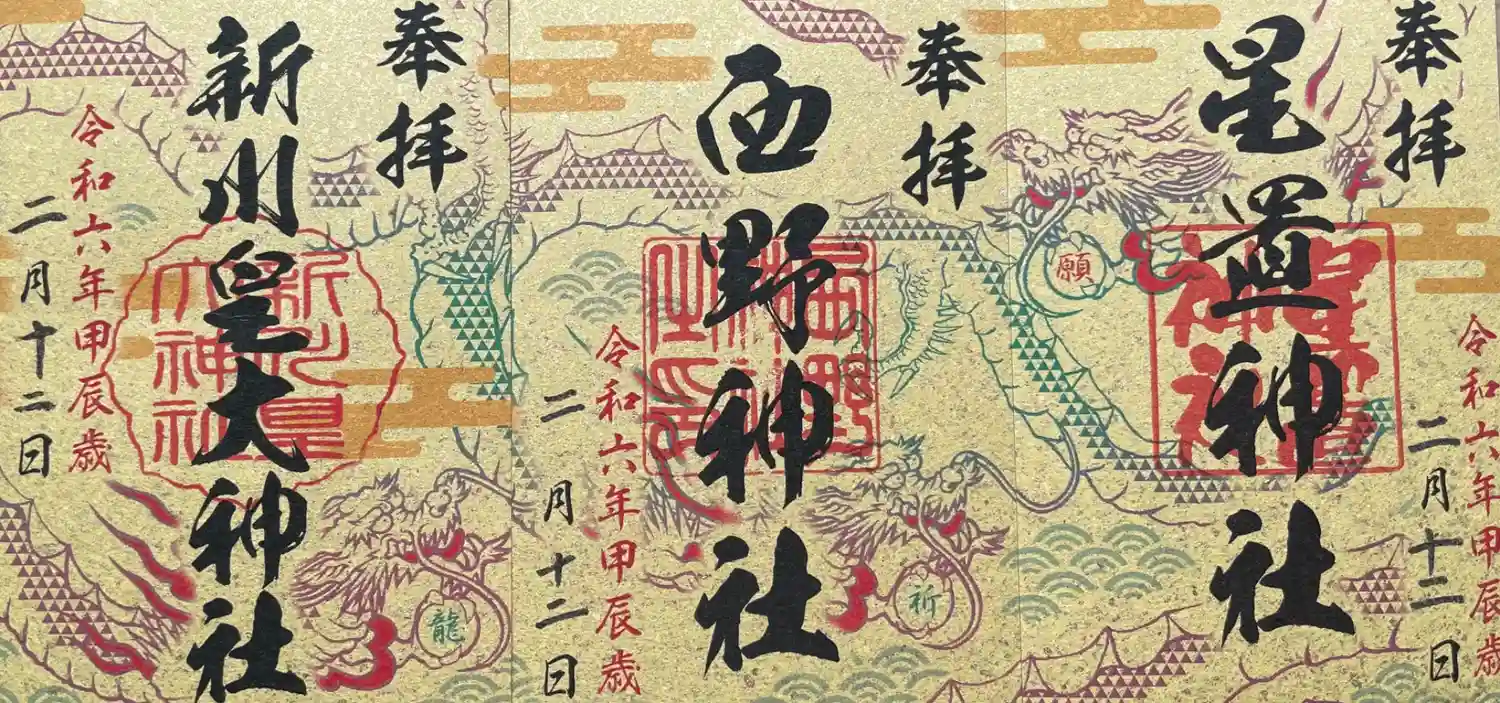 奉拝
星置神社
願
令和六年甲辰歳
二月十二日
奉拝
西野神社
祈
令和六年甲辰歳
二月十二日
奉拝
新川皇大神社
新川皇大神社
龍
令和六年甲辰歳
二月十二日